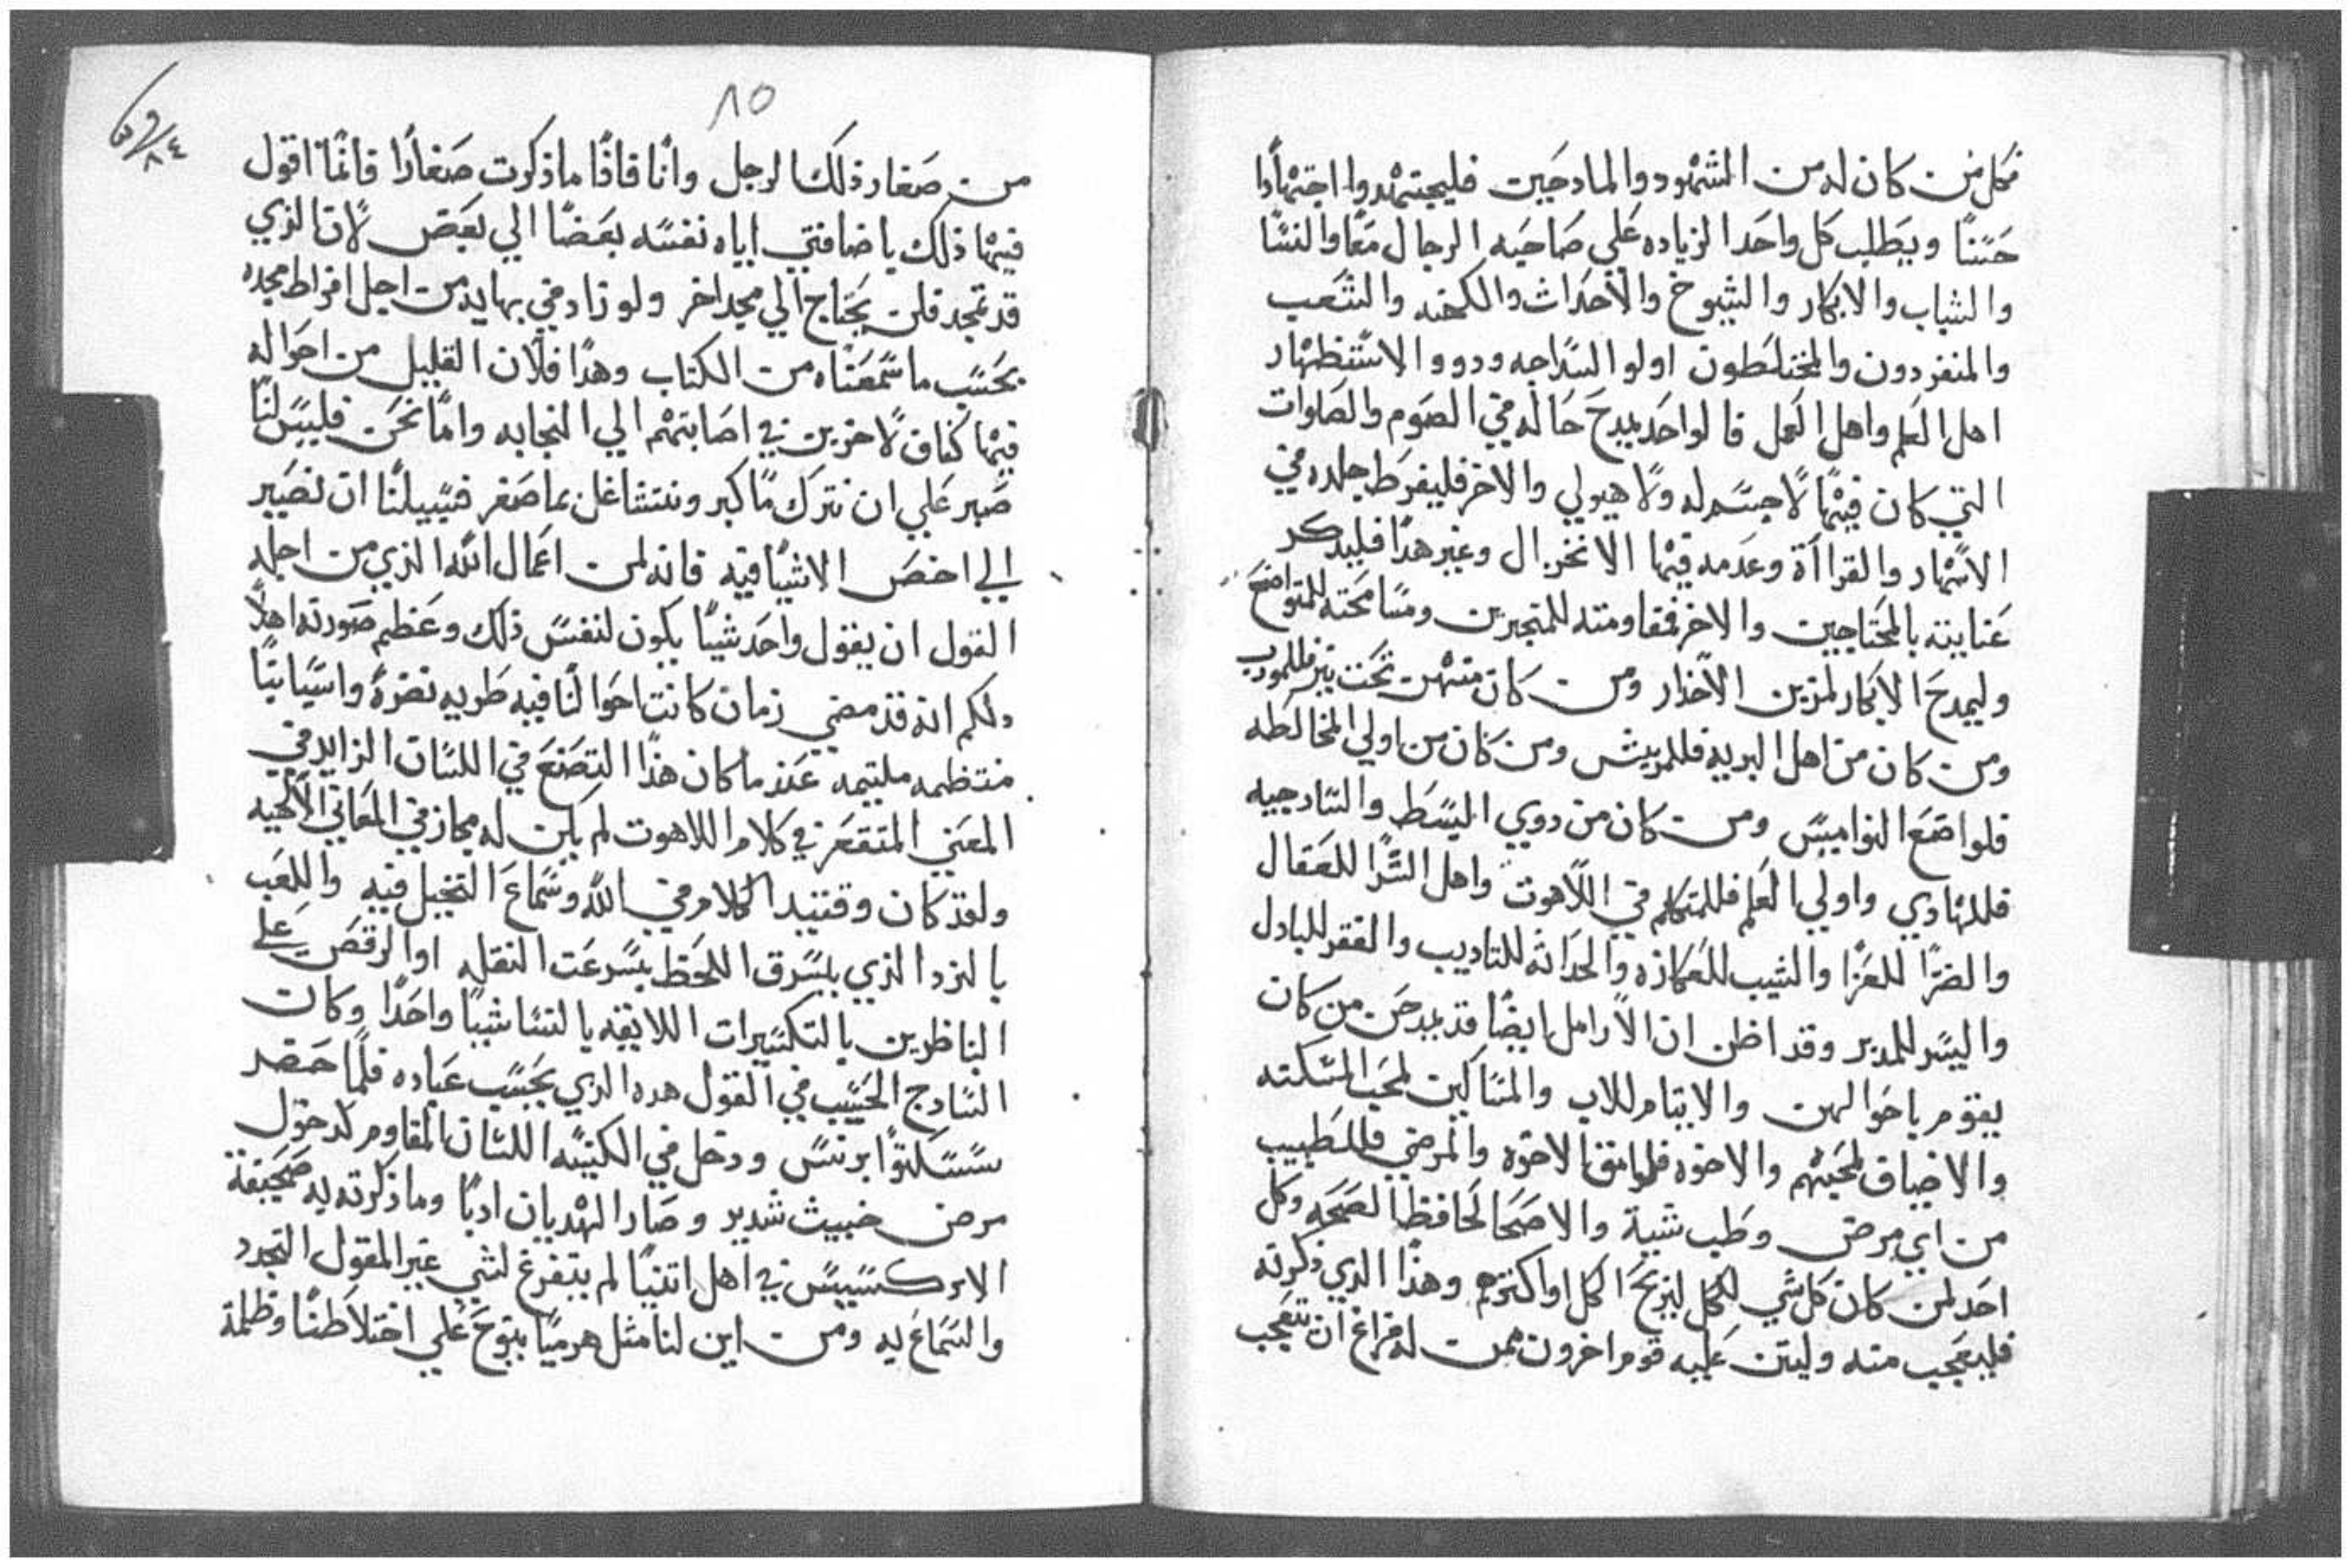 فكل من كان له من الشهود والمادحين فليجتهدوا اجتهادًا
حسنًا ويطلب كل واحد الزياده علي صاحبه الرجال معًا والنسا
والشباب والابكار والشيوخ والاحداث والكهنه والشعب
والمنفردون والمختلطون اولوا السداجه ودووا الاستظهار
اهل العلم واهل العمل فالواحد يمدح حاله في الصوم والصلوات
التي كان فيها لا جسم له ولا هيولي والاخر فليفرط جلده في
الاسهار والقراأة وعدمه فيها الانخزال وغير هدا فليدكر
عنايته بالمحتاجين والاخر مقاومته للمتجبرين ومسامحته للمتواضع
وليمدح الابكار لمزين الاخدار ومن كان منهن تحت نير فللمودب
ومن كان من اهل البريه فللمريش ومن كان من اولي المخالطه
فلواضع النواميس ومن كان من دوي البسط والسادجيه
فللهادي واولي العلم فللمتكلم في اللاهوت واهل السرا للعقال
والضرا للعزا والشيب للعكازه والحداثه للتاديب والفقر للبادل
واليسر للمدبر وقد اظن ان الارامل ايضًا قد يمدحن من كان
يقوم باحوالهن والايتام للاب والمساكين لمحب المسكنه
والاضياف لمحبهم والاخوه فلوامق الاخوه والمرضي فللطبيب
من اي مرض وطب شية والاصحا لحافظ الصحه وكل
احد لمن كان كل شي للكل ليربح الكل او اكثرهم وهذا الذي ذكرته
فليعجب منه وليثن عليه قوم اخرون ممن له فراغ ان تتعجب
٨٥
٨٤
من صغار ذلك الرجل وانا فاذا ما ذكرت صغارًا فانما اقول
فيها ذلك باضافتي اياه نفسه بعضًا الي بعض لان الذي
قد تمجد فلن يحتاج الي مجد اخر ولو زاد في بهايه من اجل افراط مجده
بحسب ما سمعناه من الكتاب وهدا فلان القليل من احواله
فيها كفاف لاخرين في اصابتهم الي النجابه واما نحن فليس لنا
صبر علي ان نترك ما كبر ونتشاغل بما صغر فسبيلنا ان نصير
الي اخص الاشيا فيه فانه لمن اعمال الله الذي من اجله
القول ان يقول واحد شيًا يكون لنفس ذلك وعظم صورته اهلًا
ولكم انه قد مضي زمان كانت احوالنا فيه طريه نضرة واسبابنا
منتظمه ملتيمه عندما كان هذا التصنع في اللسان الزايد في
المعني المتقعر في كلام اللاهوت لم يكن له مجاز في المعاني الالهيه
ولقد كان وقتيدٍ الكلام في الله وسماع التخيل فيه واللعب
بالنرد الذي يسرق اللحظ بسرعت النقله او الرقص علي
الناظرين بالتكسيرات اللايقه بالنسا شيًا واحدًا وكان
السادج الحسيب في القول هده الدي يحسب عباده فلما حضر
سسكتوا برنس ودخل في الكنيسه اللسان المقاوم لدخول
مرض خبيث شديد وصار الهديان ادبًا وما ذكرته به صحيفة
الابركسيس في اهل اتنيا لم يتفرغ لشي غير المقول التجدد
والسماع به ومن اين لنا مثل هرميا ينوح علي اختلاطنا وظلمة